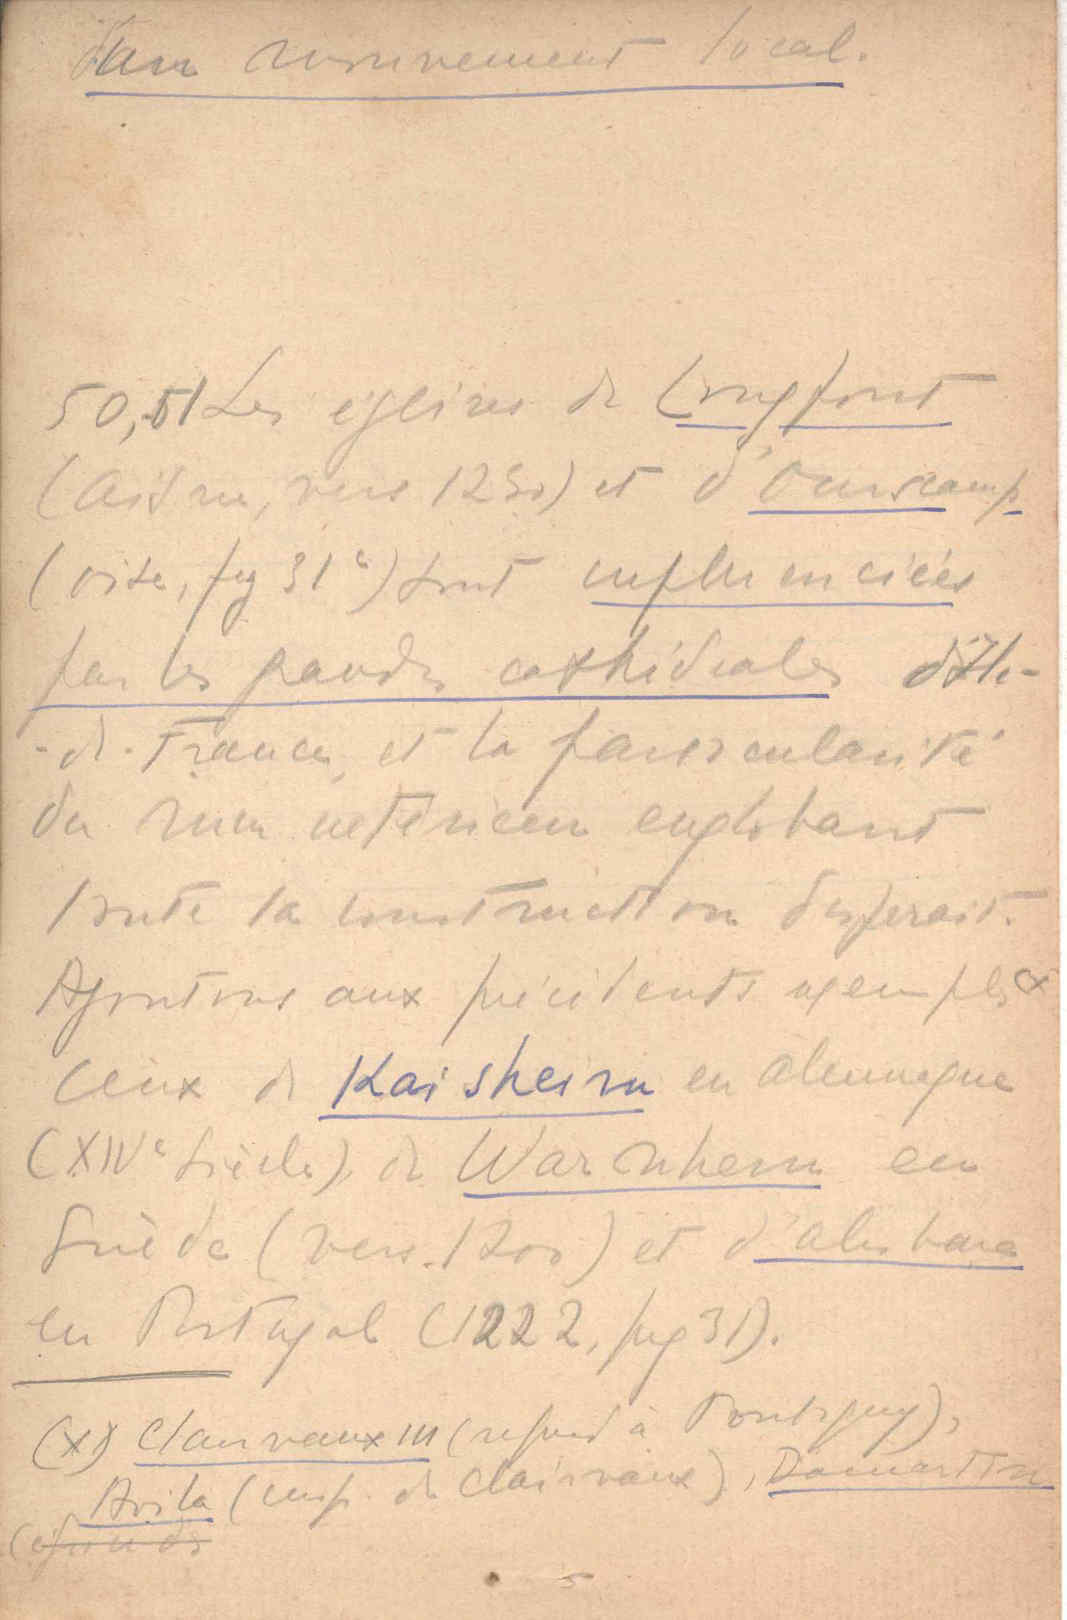 d'un mouvement local.
50,51 Les églises de Longpont
(Aisne, vers 1230) et d'Ourscamp
(Oise, fig 31e) sont influenciées
par les grandes cathédrales d'Ile-
-de-France, et la particularité
du mur extérieur englobant
toute la construction disparait.
Ajoutons aux précédents exemples x
ceux de Kaisheim en Alemagne
(XIVe siècle), de Warnhem en
Suède (vers 1200) et d'Alcobaça
en Portugal (1222, fig 31).
(x) Clairvaux III (refond à Pontigny),
Avila (insp. de Clairvaux), Dommartin